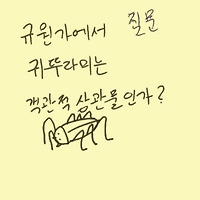 규원가에서 질문
귀뚜라미는
객관적 상관물인가?